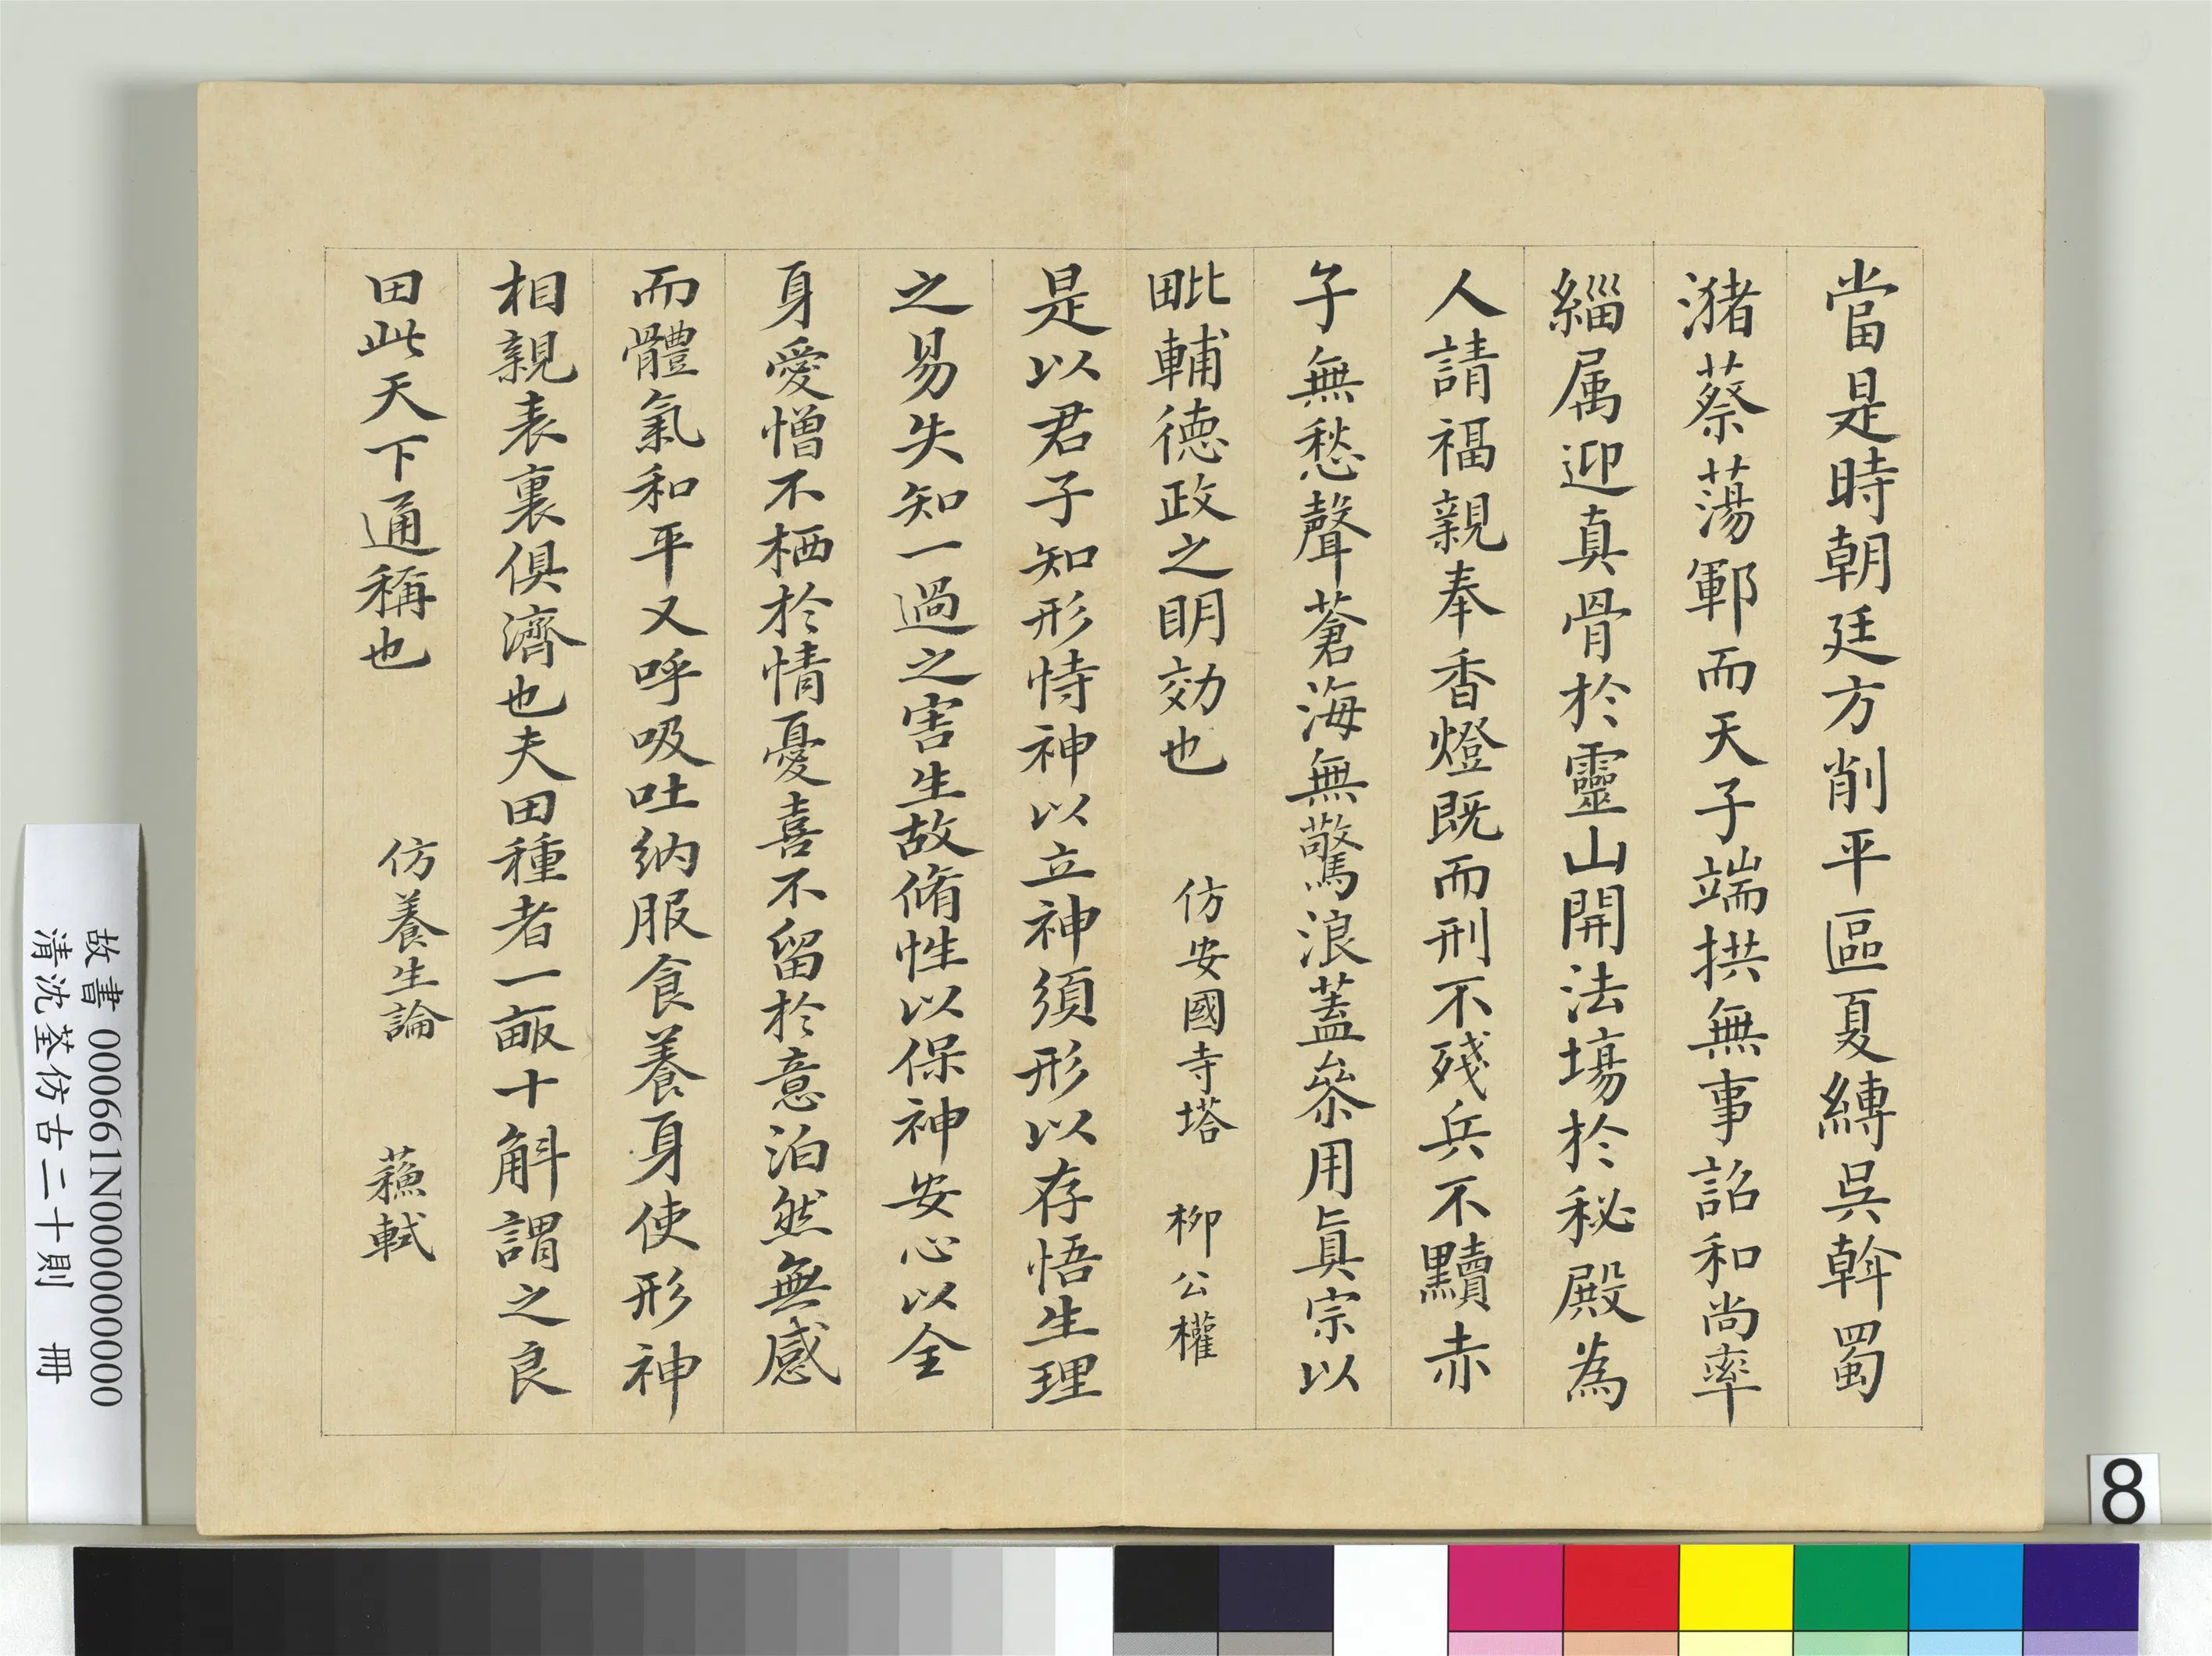 當是時朝廷方削平區夏縛吳斡蜀
瀦蔡蕩鄆而天子端拱無事詔和尚率
緇属迎真骨於靈山開法場於秘殿為
人請福親奉香燈既而刑不殘兵不黷赤
子無愁聲蒼海無驚浪蓋叅用眞宗以
毗輔德政之明効也 仿安國寺塔 柳公權
是以君子知形恃神以立神須形以存悟生理
之易失知一過之害生故脩性以保神安心以全
身愛憎不栖於情憂喜不留於意泊然無感
而體氣和平又呼吸吐納服食養身使形神
相親表裏俱濟也夫田種者一畝十斛謂之良
田此天下通稱也 仿養生論 蘓軾
故書 000661N000000000
清沈荃仿古二十則 冊
8